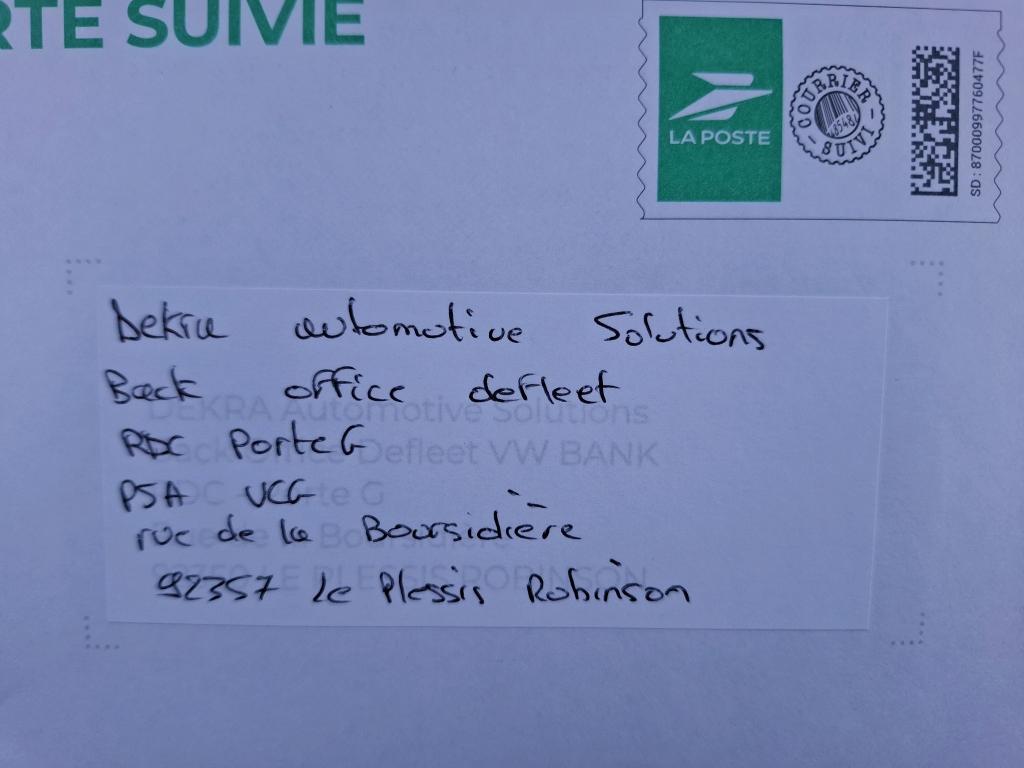 RTE SUIVIE
LA POSTE
COURRIER
SUIVI
SD : 87000997760477F
Dekra automotive Solutions
Back office defleet
RDC Porte G
PSA UCG
rue de la Boursidière
92357 Le Plessis Robinson
DEKRA Automotive Solutions
Back Office Defleet VW BANK
RDC Porte G
Rue de la Boursidière
LE PLESSIS ROBINSON